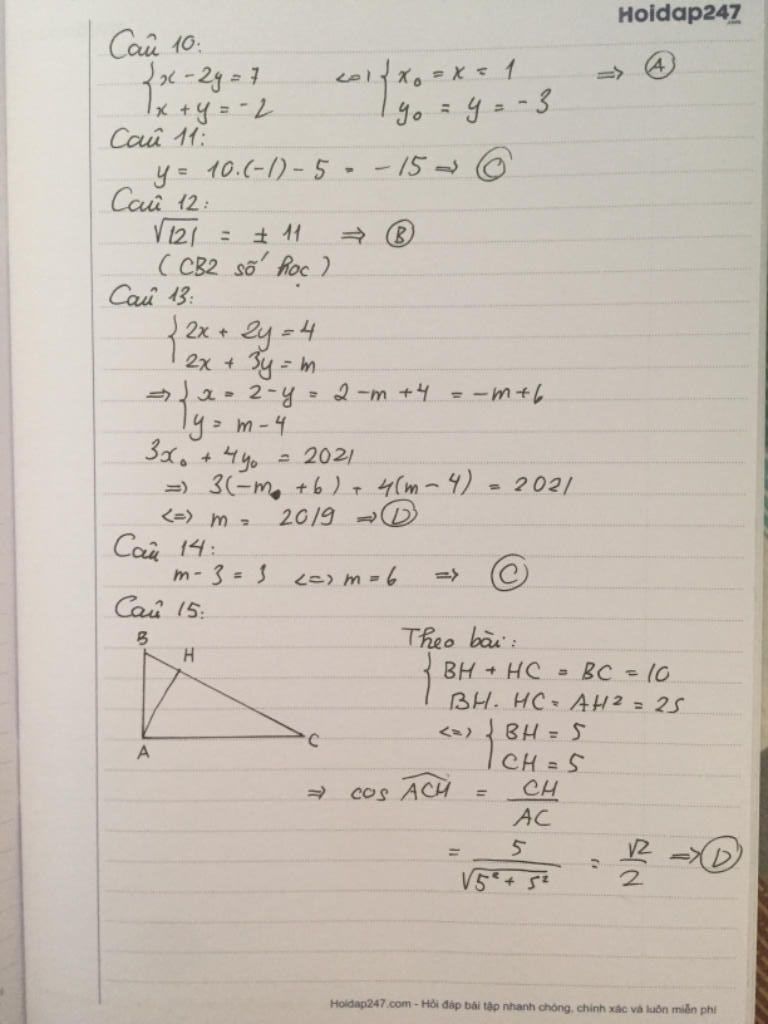 Hoidap247
.com
Câu 10:
{x - 2y = 7 <=> {x₀ = x = 1 => Ⓐ
{x + y = -2 {y₀ = y = -3
Câu 11:
y = 10.(-1) - 5 = -15 => Ⓒ
Câu 12:
√121 = ± 11 => Ⓑ
(CB2 số học)
Câu 13:
{2x + 2y = 4
{2x + 3y = m
=> {x = 2 - y = 2 - m + 4 = -m + 6
{y = m - 4
3x₀ + 4y₀ = 2021
=> 3(-m + 6) + 4(m - 4) = 2021
<=> m = 2019 => Ⓓ
Câu 14:
m - 3 = 3 <=> m = 6 => Ⓒ
Câu 15:
B
H
A
C
Theo bài:
{BH + HC = BC = 10
{BH . HC = AH² = 25
<=> {BH = 5
{CH = 5
=> cos ACH = CH / AC
= 5 / √5² + 5² = √2 / 2 => Ⓓ
Hoidap247.com - Hỏi đáp bài tập nhanh chóng, chính xác và luôn miễn phí